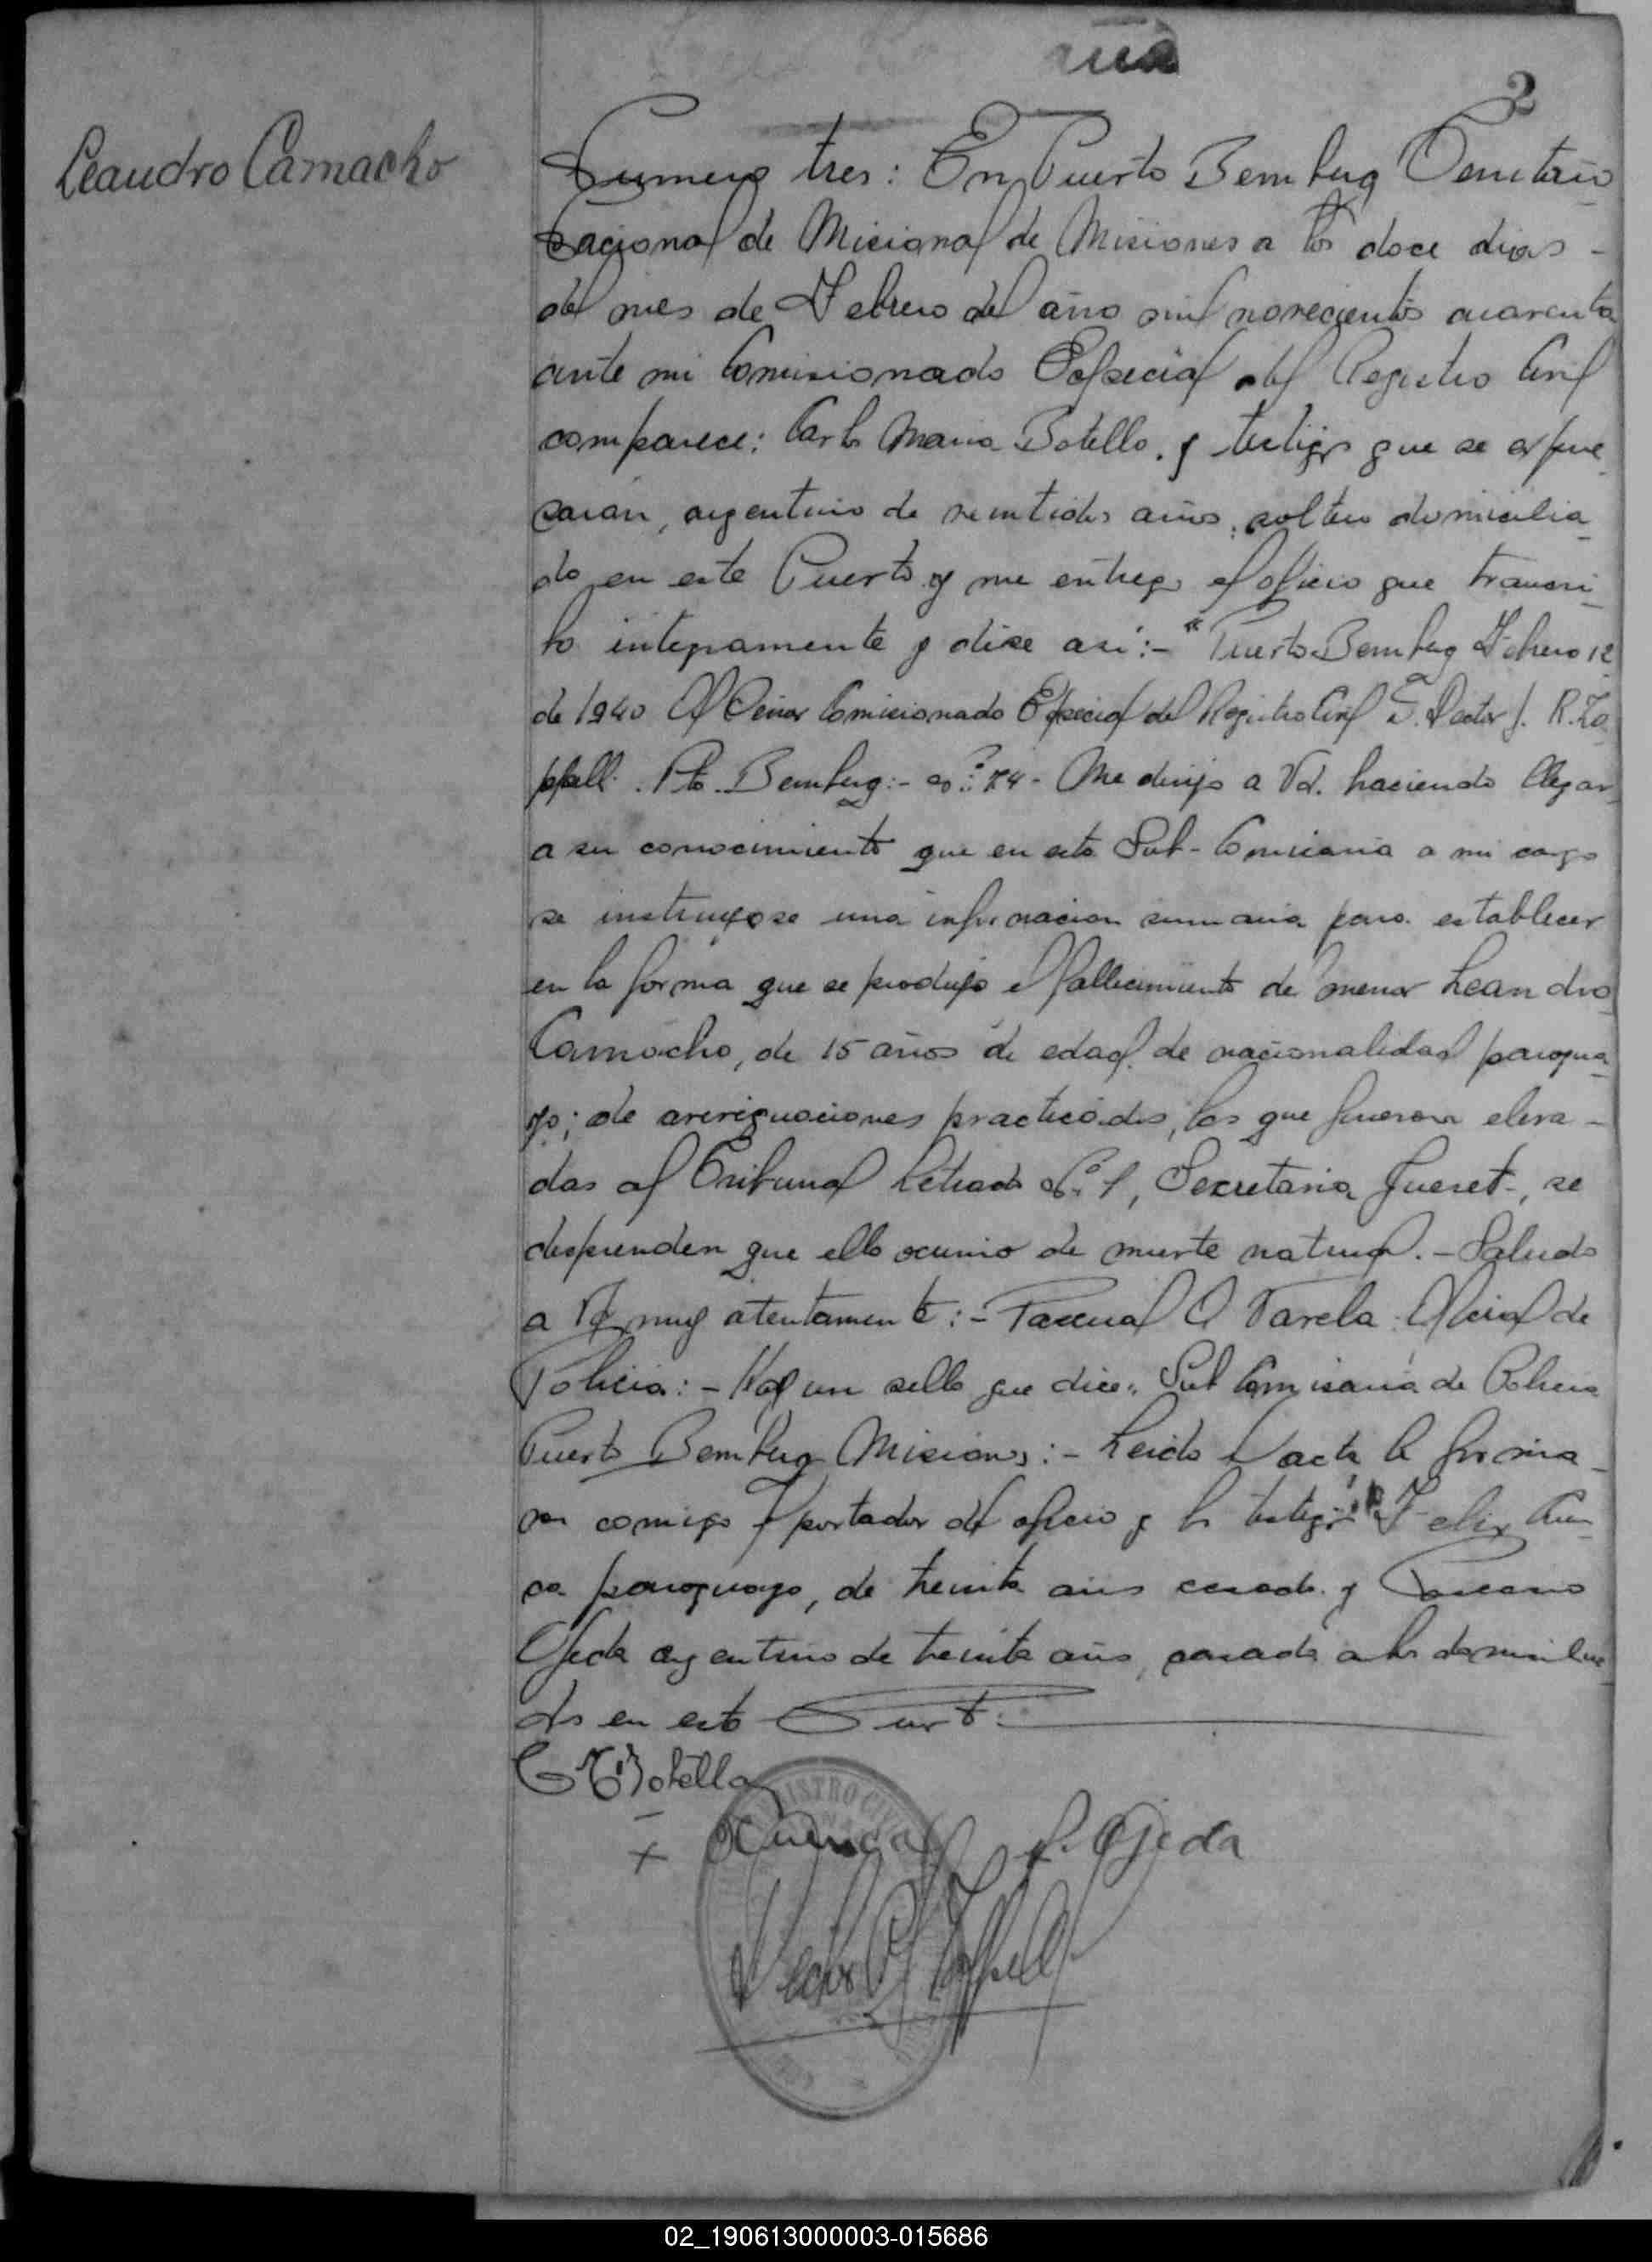 2
Leandro Camacho
Numero tres: En Puerto Bemberg Territorio
Nacional de Micional de Misiones a los doce dias -
del mes de Febrero del año mil novecientos cuarenta
ante mi Comisionado Especial del Registro Civil
comparece: Carlos Maria Botello, y testigos que se expre
saran, argentino de veintidos años, soltero domicilia-
do en este Puerto y me entrega el oficio que transcri-
bo integramente y dice asi:- "Puerto Bemberg Febrero 12
de 1940 Al Señor Comicionado Especial del Registro Civil S. Hector J. R. Zo
ppell. Pto. Bemberg:- Nº 74- Me dirijo a Vd. haciendo llegar
a su conocimiento que en esta Sub-Comisaria a mi cargo
se instruyose una informacion sumaria para establecer
en la forma que se produjo el fallecimiento de menor Leandro
Camacho, de 15 años de edad de nacionalidad paragua-
yo; de averiguaciones practicadas, las que fueron eleva-
das al Tribunal Letrado Nº 1, Secretaria Jueret-, se
desprenden que ello ocurrio de muerte natural.- Saludo
a Vd. muy atentamente:- Pascual Varela Oficial de
Policia:- Hay un sello que dice: Sub Comisaria de Policia
Puerto Bemberg Misiones:- Leido el acta la firma-
ron comigo el portador del oficio y los testigos Felix Cuen-
ca paraguayo, de treinta años casado y
Ojeda argentino de treinta años, casado ambos domicilia
dos en este Puerto.
C M Botello
+ Cuenca P. Ojeda
REGISTRO CIVIL
02_190613000003-015686